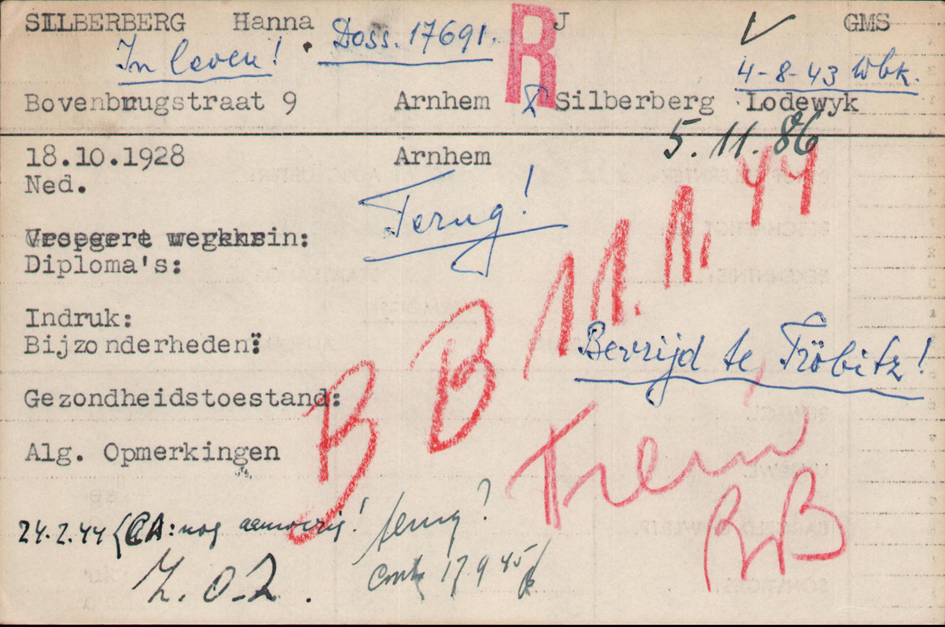 SILBERBERG Hanna R J GMS
In leven! Doss. 17691. 4-8-43 Wbk.
Bovenbrugstraat 9 Arnhem Silberberg Lodewyk
5.11.86
18.10.1928 Arnhem
Ned.
Terug!
11.1.44
Diploma's:
Indruk:
Bijzonderheden:
Bevrijd te Tröbitz!
Gezondheidstoestand:
BB
Trein
BB
Alg. Opmerkingen
24.2.44 CA: nog aanwezig! terug?
Z.O.Z. 17.9.45